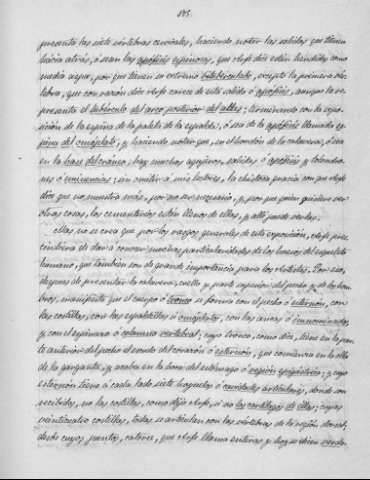 185.
presenta las siete vértebras cervicales, haciendo notar las salidas que tienen
hácia atrás, ó sean las apófisis espinosas, que Arfe dice están hendidas como
media aspa, por que tienen su extremo bituberculado, excepto la primera vér-
tebra, que con razón dice Arfe carece de esta salida ó apófisis, aunque la re-
presenta el tubérculo del arco posterior del atlas; terminando con la expo-
sición de la espina de la paleta de la espalda, ó sea de la apófisis llamada es-
pina del omóplato; y haciendo notar que, en el hondón de la calavera, ó sea
en la base del cráneo, hay muchos agujeros, salidas ó apófisis y tolondro-
nes ó eminencias; sin omitir á mis lectores, la chistosa gracia con que Arfe
dice que no muestra más, por no ser necesario, y por que quien quisiere ver
otras cosas, los cementerios están llenos de ellas, y allí puede verlas.
Mas no se crea que por los rasgos generales de esta exposición, Arfe pres-
cindiera de dar á conocer muchas particularidades de los huesos del esqueleto
humano, que también son de grande importancia para los artistas. Por eso,
después de presentar la calavera, cuello y parte superior del pecho y de los hom-
bros, manifiesta que el cuerpo ó tronco se forma con el pecho ó esternón, con
las costillas, con las espaldillas ú omóplatos, con las ancas ó innominados,
y con el espinazo ó columna vertebral; cuyo tronco, como dice, tiene en la par-
te anterior del pecho el escudo del corazón ó esternón, que comienza en la olla
de la garganta, y acaba en la boca del estómago ó región epigástrica; y cuyo
esternón tiene á cada lado siete hoyuelos ó cavidades articulares, donde son
recibidas, no las costillas, como dijo Arfe, si no los cartílagos de ellas; cuyas
veinticuatro costillas, todas se articulan con las vértebras de la región dorsal;
desde cuyos puntos, catorce, que Arfe llama enteras y hoy se dicen verda-